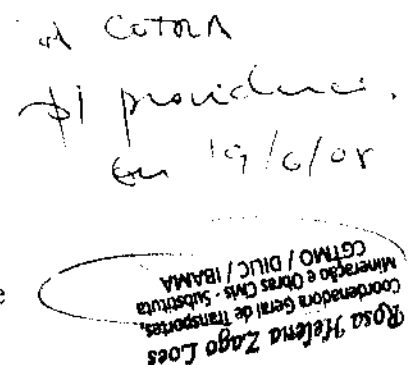 À COTRA
p/ providenciar.
Em 19/6/08
e
Rosa Helena Zago Loes
Coordenadora Geral de Transportes,
Mineração e Obras Civis - Substituta
CGTMO / DILIC / IBAMA